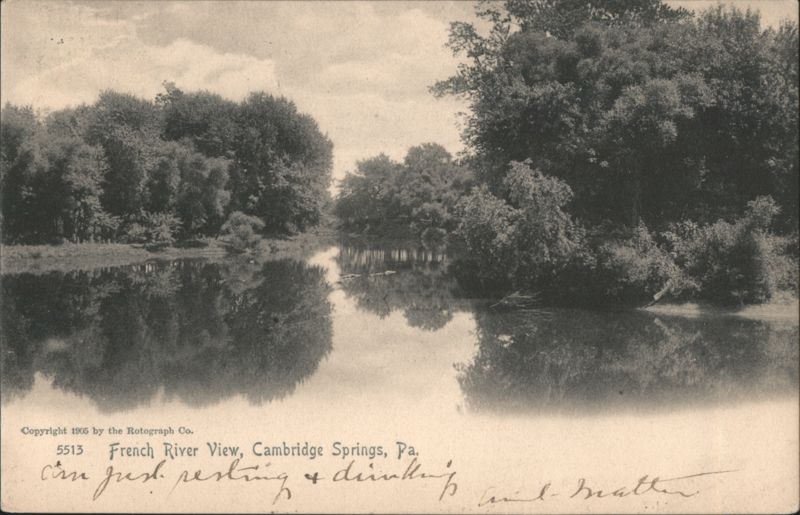 Copyright 1905 by the Rotograph Co.
5513 French River View, Cambridge Springs, Pa.
am just resting + drinking